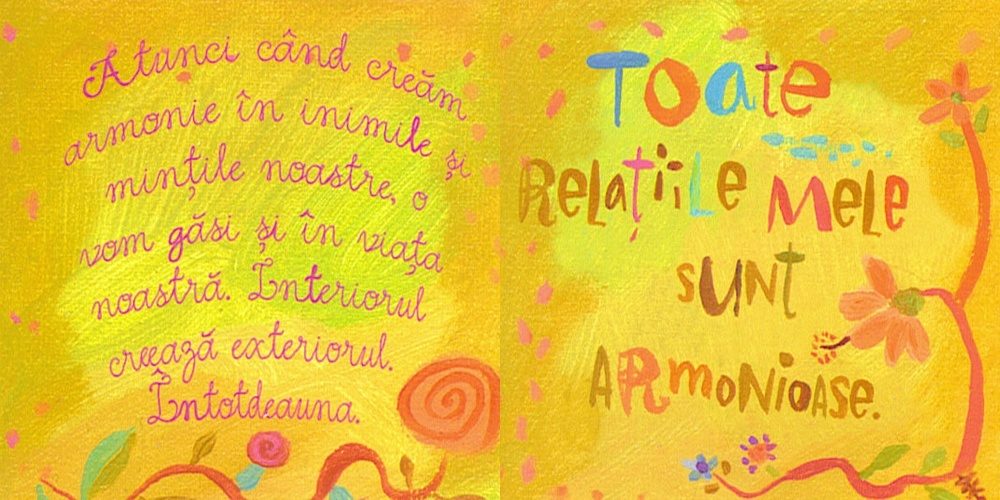 Atunci când creăm
armonie în inimile și
mințile noastre, o
vom găsi și în viața
noastră. Interiorul
creează exteriorul.
Întotdeauna.
Toate
Relațiile Mele
sunt
armonioase.